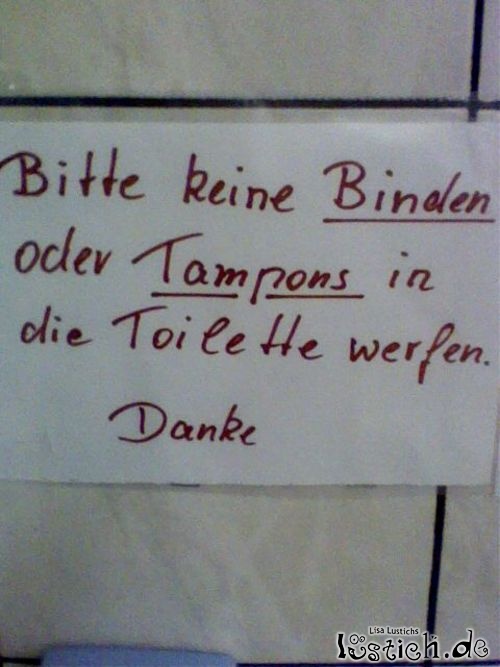 Bitte keine Binden
oder Tampons in
die Toilette werfen.
Danke
Lisa Lustichs
lustich.de